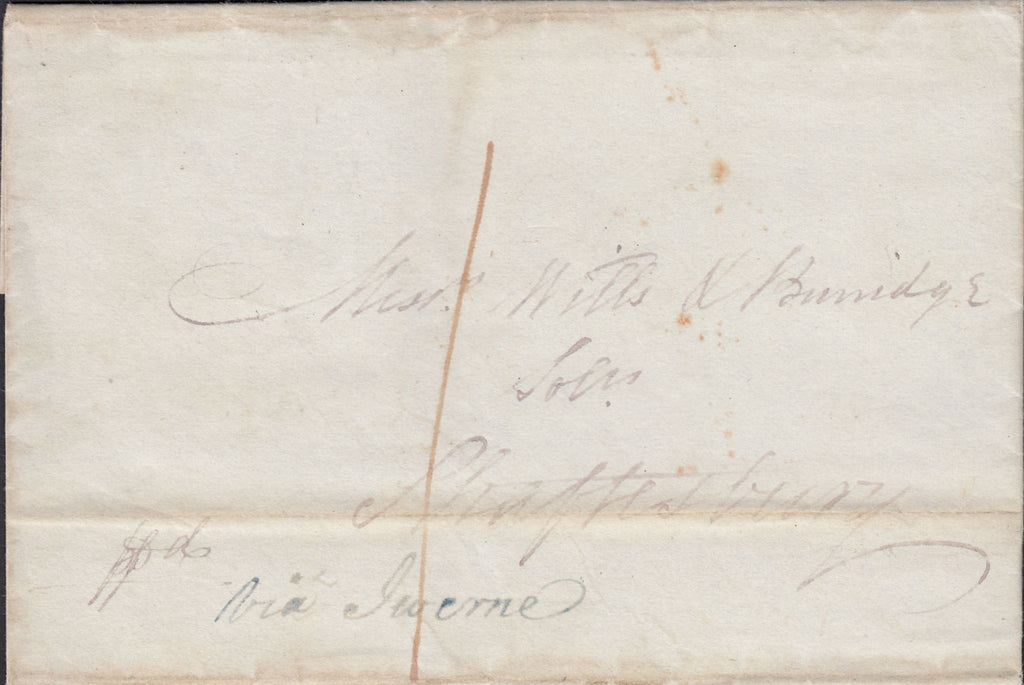 Messrs. Wills & Burridge
Solrs.
Shaftesbury
ppd
via Iwerne
1